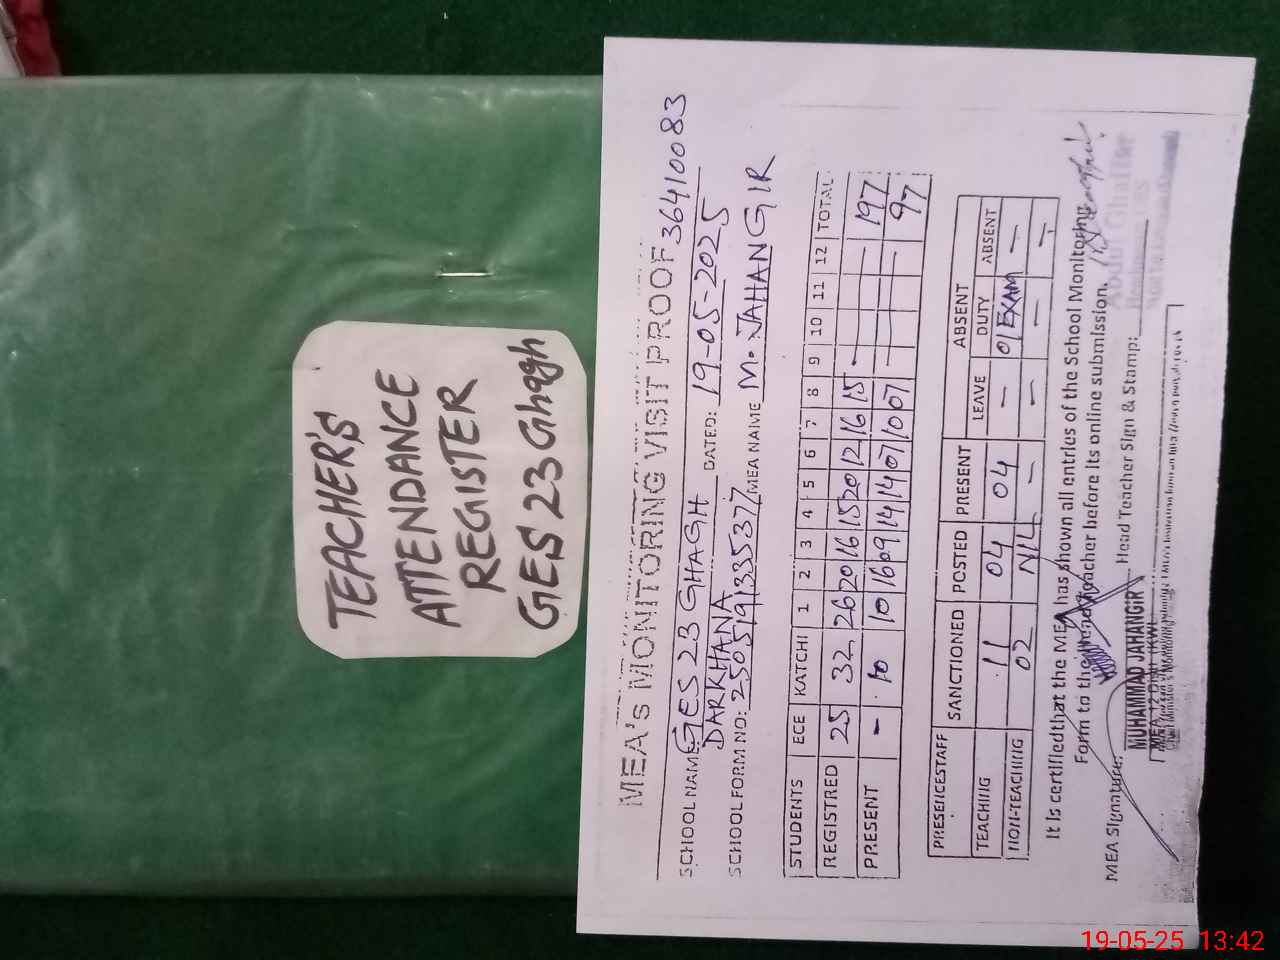 TEACHER'S
ATTENDANCE
REGISTER
GES 23 Ghagh
MEA's MONITORING VISIT PROOF 36410083
SCHOOL NAME GES 23 GHAGH DATED: 19-05-2025
DARKHANA
SCHOOL FORM NO: 2505191335377 MEA NAME M. JAHANGIR
STUDENTS ECE KATCHI 1 2 3 4 5 6 7 8 9 10 11 12 TOTAL
REGISTRED 25 32 26 20 16 15 20 12 16 15 - - - - 197
PRESENT - 10 10 16 09 14 14 07 10 07 - - - - 97
PRESENCE STAFF SANCTIONED POSTED PRESENT ABSENT
LEAVE DUTY ABSENT
TEACHING 11 04 04 - 01 EXAM -
NON-TEACHING 02 NIL - - - -
It is certified that the MEA has shown all entries of the School Monitoring
Form to the head teacher before its online submission.
MEA Signature: Head Teacher Sign & Stamp:
MUHAMMAD JAHANGIR
Abdul Ghaffar
19-05-25 13:42